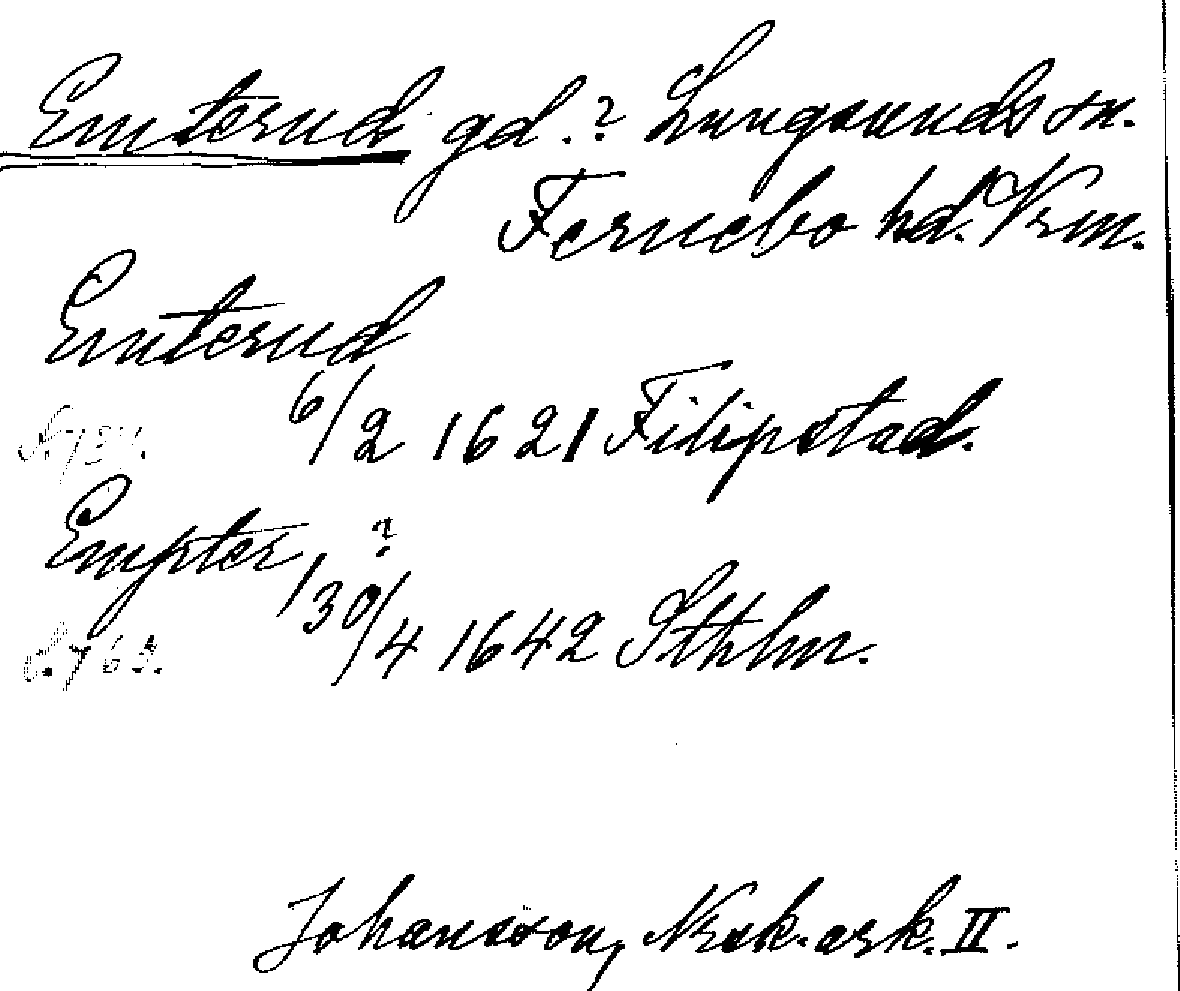 Emterud gd.? Lungsunds sn.
Fernebo hd. Vrm.
Emterud
6/2 1621 Filipstad.
Empter, ?
30/4 1642 Sthlm.
S. 763.
Johansson, Nrsk. ark. II.